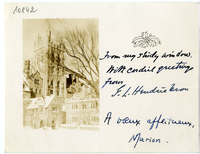 10842
From my study window.
With cordial greetings
from
F. L. Hendrickson
A vœux affectueux,
Marion.